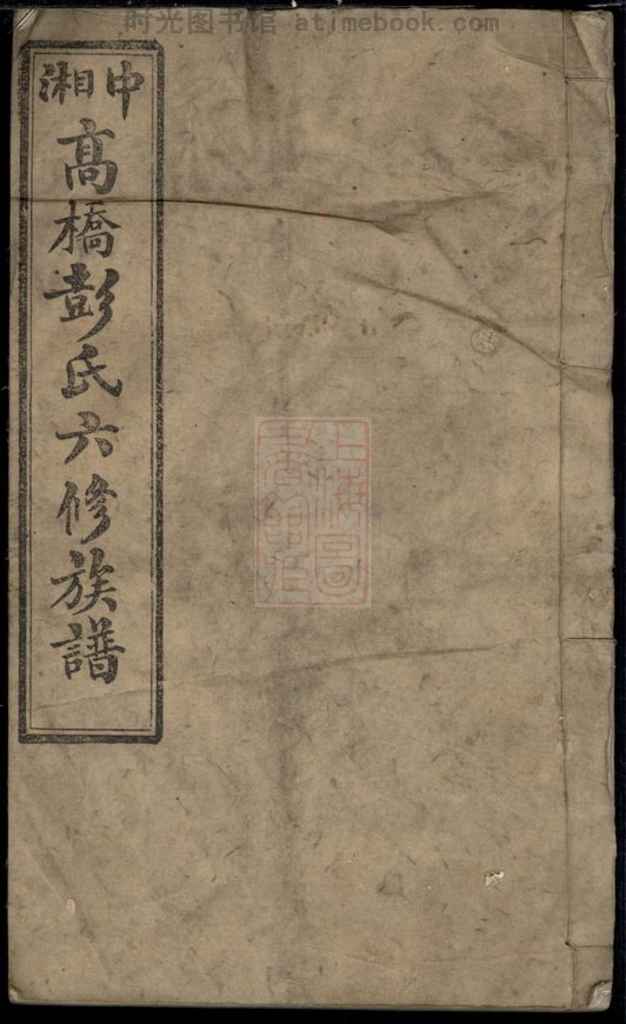 时光图书馆 atimebook.com
中湘
高橋彭氏六修族譜